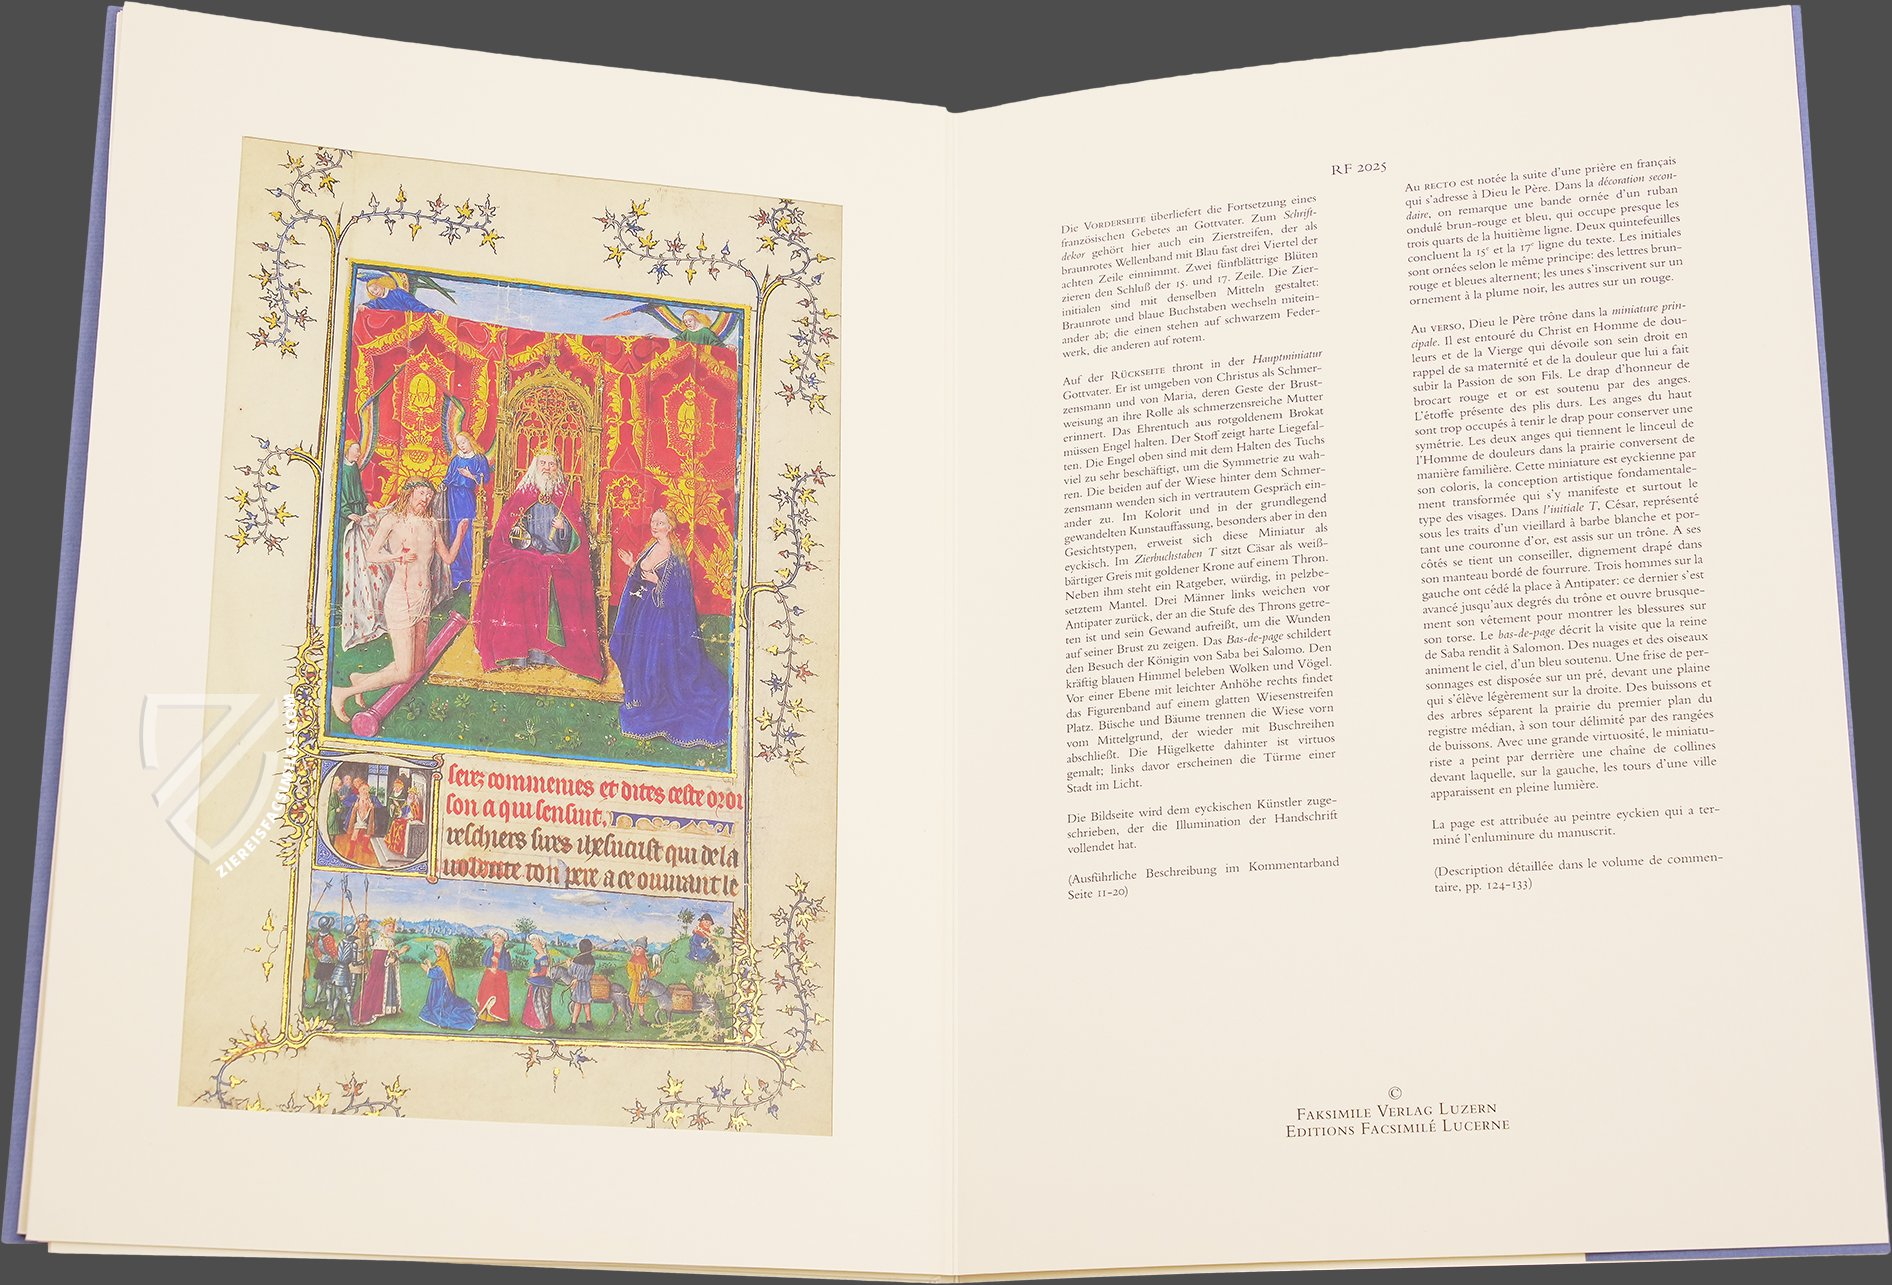 seirz commenies et dites ceste oroi
son a qui sensuit.
ZIEREISFACSIMILES.COM
RF 2025
Die VORDERSEITE überliefert die Fortsetzung eines
französischen Gebetes an Gottvater. Zum Schrift-
dekor gehört hier auch ein Zierstreifen, der als
braunrotes Wellenband mit Blau fast drei Viertel der
achten Zeile einnimmt. Zwei fünfblättrige Blüten
zieren den Schluß der 15. und 17. Zeile. Die Zier-
initialen sind mit denselben Mitteln gestaltet:
Braunrote und blaue Buchstaben wechseln mitein-
ander ab; die einen stehen auf schwarzem Feder-
werk, die anderen auf rotem.
Auf der RÜCKSEITE thront in der Hauptminiatur
Gottvater. Er ist umgeben von Christus als Schmer-
zensmann und von Maria, deren Geste der Brust-
weisung an ihre Rolle als schmerzensreiche Mutter
erinnert. Das Ehrentuch aus rotgoldenem Brokat
müssen Engel halten. Der Stoff zeigt harte Liegefal-
ten. Die Engel oben sind mit dem Halten des Tuchs
viel zu sehr beschäftigt, um die Symmetrie zu wah-
ren. Die beiden auf der Wiese hinter dem Schmer-
zensmann wenden sich in vertrautem Gespräch ein-
ander zu. Im Kolorit und in der grundlegend
gewandelten Kunstauffassung, besonders aber in den
Gesichtstypen, erweist sich diese Miniatur als
eyckisch. Im Zierbuchstaben T sitzt Cäsar als weiß-
bärtiger Greis mit goldener Krone auf einem Thron.
Neben ihm steht ein Ratgeber, würdig, in pelzbe-
setztem Mantel. Drei Männer links weichen vor
Antipater zurück, der an die Stufe des Throns getre-
ten ist und sein Gewand aufreißt, um die Wunden
auf seiner Brust zu zeigen. Das Bas-de-page schildert
den Besuch der Königin von Saba bei Salomo. Den
kräftig blauen Himmel beleben Wolken und Vögel.
Vor einer Ebene mit leichter Anhöhe rechts findet
das Figurenband auf einem glatten Wiesenstreifen
Platz. Büsche und Bäume trennen die Wiese vorn
vom Mittelgrund, der wieder mit Buschreihen
abschließt. Die Hügelkette dahinter ist virtuos
gemalt; links davor erscheinen die Türme einer
Stadt im Licht.
Die Bildseite wird dem eyckischen Künstler zuge-
schrieben, der die Illumination der Handschrift
vollendet hat.
(Ausführliche Beschreibung im Kommentarband
Seite 11-20)
Au RECTO est notée la suite d'une prière en français
qui s'adresse à Dieu le Père. Dans la décoration secon-
daire, on remarque une bande ornée d'un ruban
ondulé brun-rouge et bleu, qui occupe presque les
trois quarts de la huitième ligne. Deux quintefeuilles
concluent la 15e et la 17e ligne du texte. Les initiales
sont ornées selon le même principe: des lettres brun-
rouge et bleues alternent; les unes s'inscrivent sur un
ornement à la plume noir, les autres sur un rouge.
Au VERSO, Dieu le Père trône dans la miniature prin-
cipale. Il est entouré du Christ en Homme de dou-
leurs et de la Vierge qui dévoile son sein droit en
rappel de sa maternité et de la douleur que lui a fait
subir la Passion de son Fils. Le drap d'honneur de
brocart rouge et or est soutenu par des anges.
L'étoffe présente des plis durs. Les anges du haut
sont trop occupés à tenir le drap pour conserver une
symétrie. Les deux anges qui tiennent le linceul de
l'Homme de douleurs dans la prairie conversent de
manière familière. Cette miniature est eyckienne par
son coloris, la conception artistique fondamentale-
ment transformée qui s'y manifeste et surtout le
type des visages. Dans l'initiale T, César, représenté
sous les traits d'un vieillard à barbe blanche et por-
tant une couronne d'or, est assis sur un trône. A ses
côtés se tient un conseiller, dignement drapé dans
son manteau bordé de fourrure. Trois hommes sur la
gauche ont cédé la place à Antipater: ce dernier s'est
avancé jusqu'aux degrés du trône et ouvre brusque-
ment son vêtement pour montrer les blessures sur
son torse. Le bas-de-page décrit la visite que la reine
de Saba rendit à Salomon. Des nuages et des oiseaux
animent le ciel, d'un bleu soutenu. Une frise de per-
sonnages est disposée sur un pré, devant une plaine
qui s'élève légèrement sur la droite. Des buissons et
des arbres séparent la prairie du premier plan du
registre médian, à son tour délimité par des rangées
de buissons. Avec une grande virtuosité, le miniatu-
riste a peint par derrière une chaîne de collines
devant laquelle, sur la gauche, les tours d'une ville
apparaissent en pleine lumière.
La page est attribuée au peintre eyckien qui a ter-
miné l'enluminure du manuscrit.
(Description détaillée dans le volume de commen-
taire, pp. 124-133)
©
FAKSIMILE VERLAG LUZERN
EDITIONS FACSIMILÉ LUCERNE